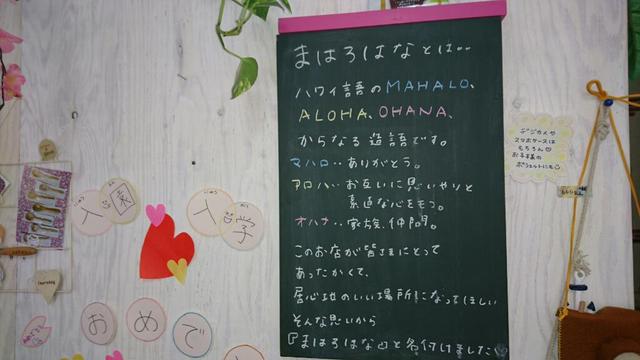 まはろはなとは‥
ハワイ語のMAHALO、
ALOHA、OHANA、
からなる造語です。
マハロ‥ありがとう。
アロハ‥お互いに思いやりと
素直な心をもつ。
オハナ‥家族、仲間。
このお店が皆さまにとって
あったかくて、
居心地のいい場所になってほしい
そんな思いから
『まはろはな』と名付けました
入園
入学
おめで
デジカメや
スマホケースは
もちろん♡
お子様の
ポシェットにも